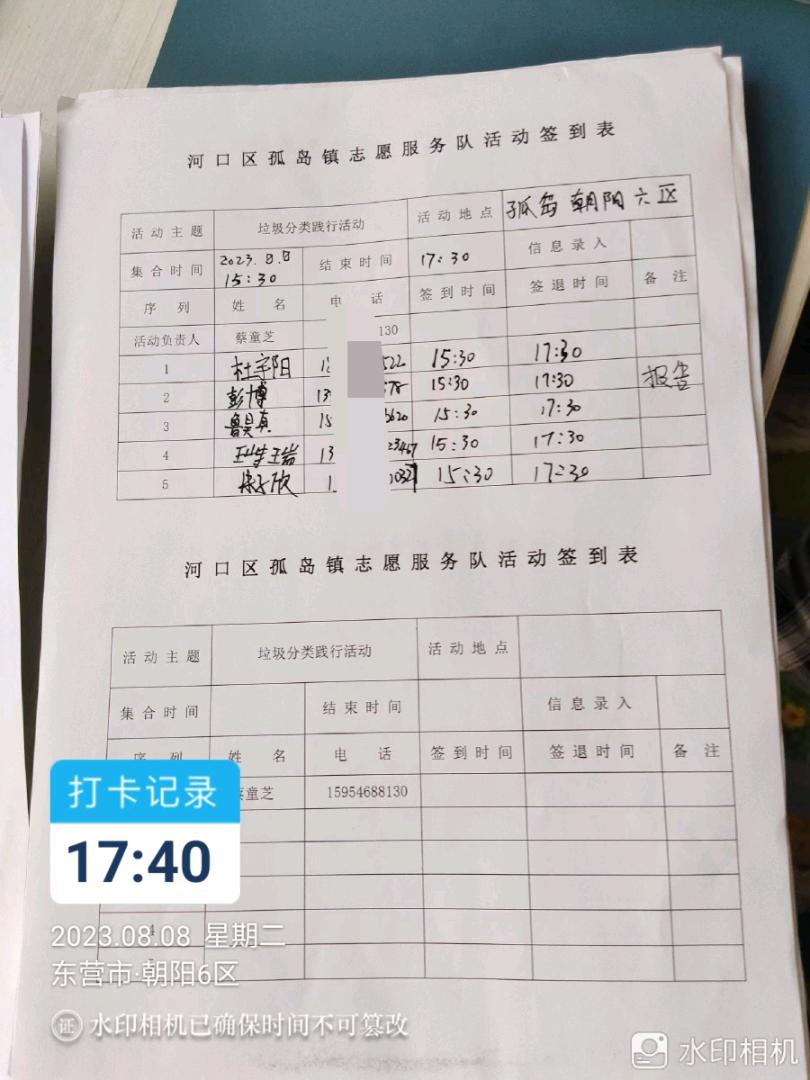 河口区孤岛镇志愿服务队活动签到表
活动主题 垃圾分类践行活动 活动地点 孤岛 朝阳六区
集合时间 2023.8.8 15:30 结束时间 17:30 信息录入
序列 姓名 电话 签到时间 签退时间 备注
活动负责人 蔡童芝 130
1 杜宇阳 522 15:30 17:30
2 彭博 13 578 15:30 17:30 报告
3 15 620 15:30 17:30
4 13 23467 15:30 17:30
5 1 15:30 17:30
河口区孤岛镇志愿服务队活动签到表
活动主题 垃圾分类践行活动 活动地点
集合时间 结束时间 信息录入
序列 姓名 电话 签到时间 签退时间 备注
蔡童芝 15954688130
打卡记录
17:40
2023.08.08 星期二
东营市·朝阳6区
证 水印相机已确保时间不可篡改
水印相机